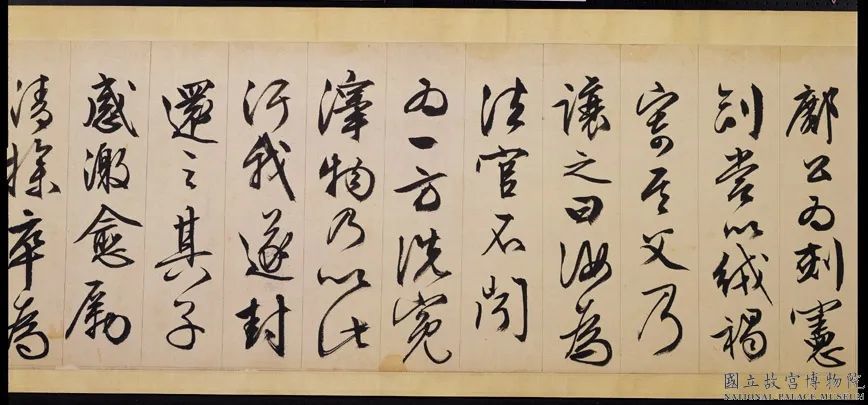 鄺公為刑憲
副嘗以絨褐
寄其父乃
讓之曰汝為
法官不聞
為一方洗冤
澤物乃以此
汙我遂封
還之其子
感激愈勵
清操卒為
國立故宮博物院
NATIONAL PALACE MUSEUM